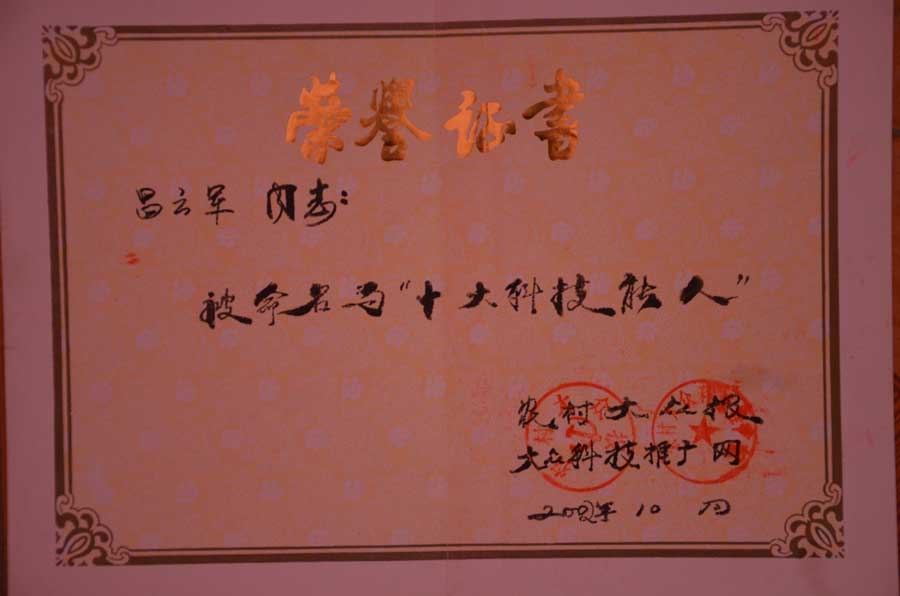 荣誉证书
昌云军 同志:
被命名为“十大科技能人”
农村大众报
大众科技推广网
年 10 月